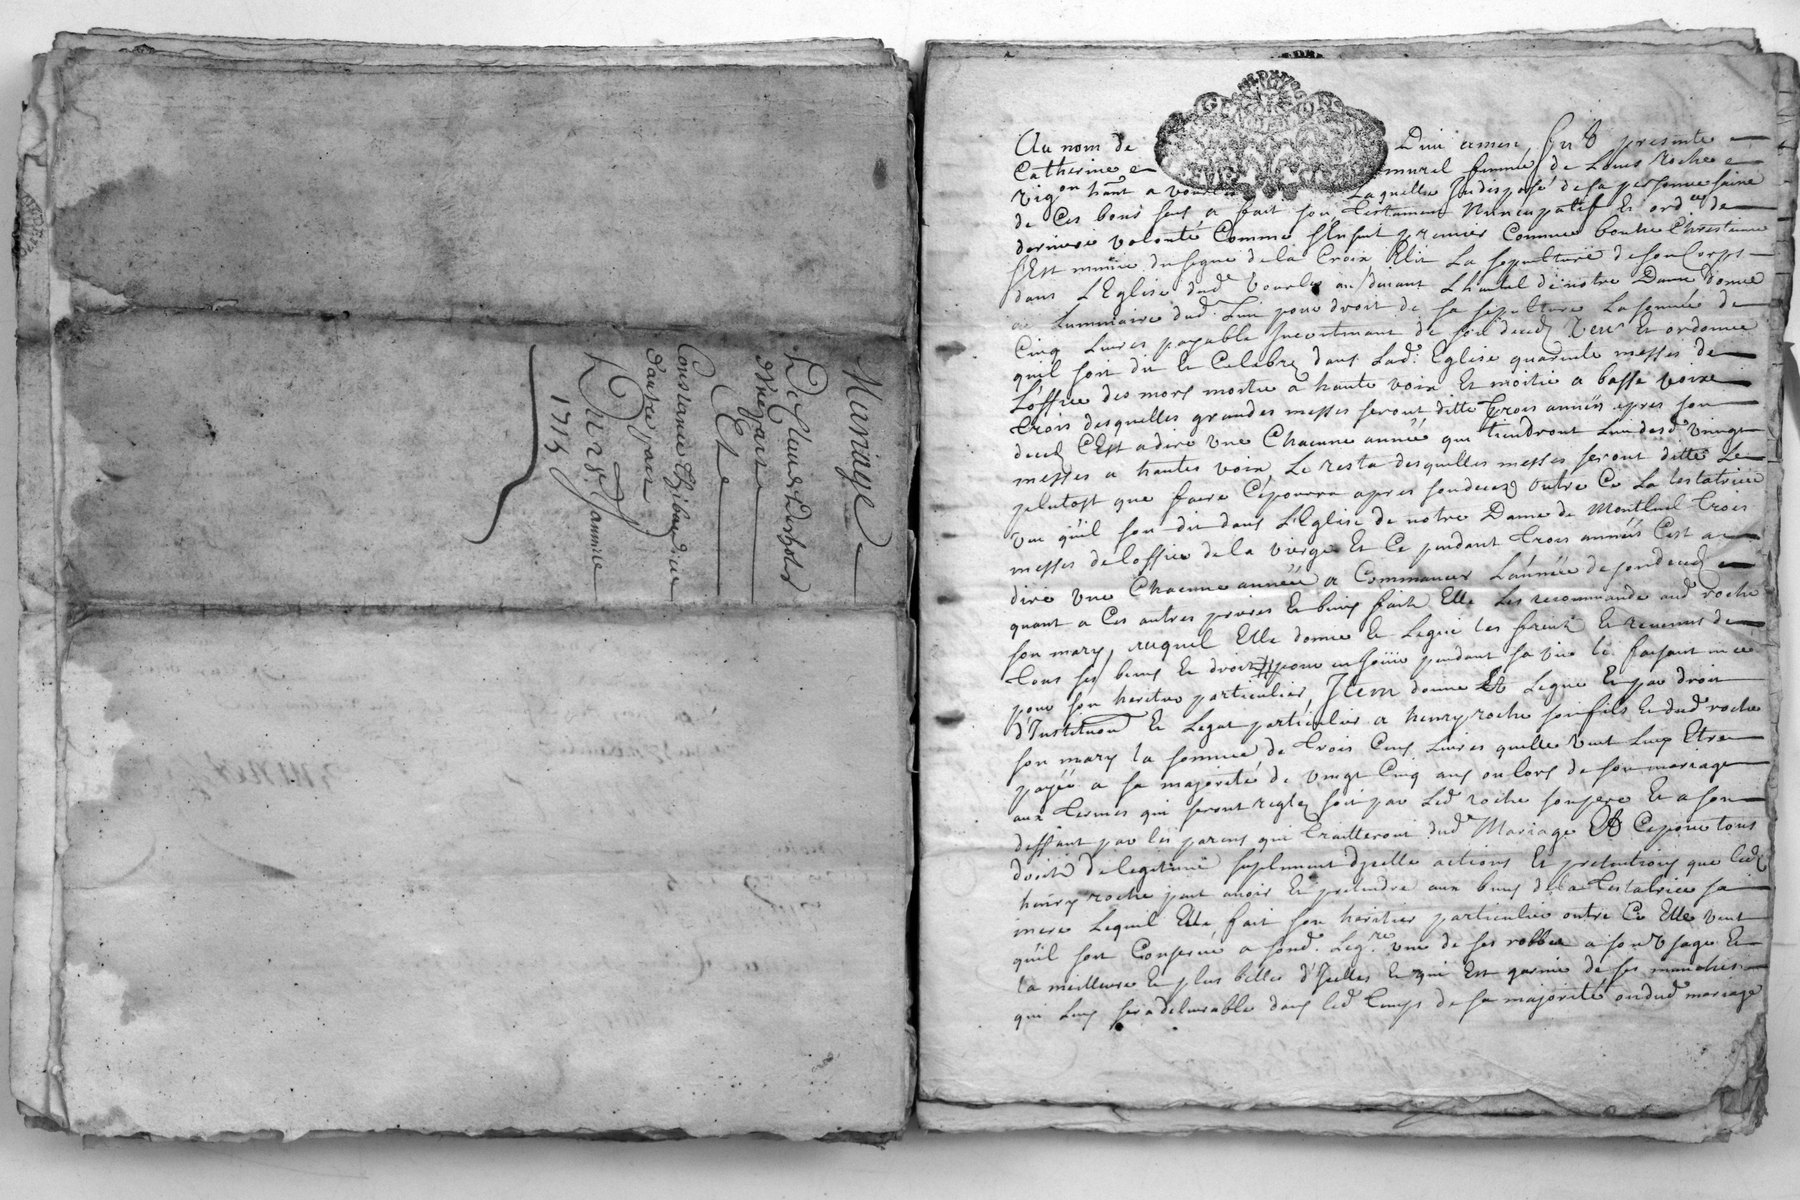 Mariage
De Claude
Et
Constance
d'autre part
Du 28 Janvier
1715
Au nom de Dieu amen fut presente
Catherine murel femme de Louis roche
vig.on hant a laquelle Indisposé de sa personne saine
de Ces bons sens a fait son testament Nuncupatif Et ord.ce de
derniere volonté Comme s'Ensuit premier Comme bonne Chrestienne
s'Est munie du signe de la Croix Elit La sepulture de son Corps
dans L'Eglise dud. Vourles au devant L'hautel de notre Dame donne
a Luminaire dud. Lieu pour droit de sa sepulture La somme de
Cinq Livres payable Incontinant de son deced Veut Et ordonne
quil soit dit Et Celebré dans Lad. Eglise quarente messes de
L'office des mors moitié a haute voix Et moitié a basse voix
trois desquelles grandes messes seront ditte trois années apres son
deced C'Est a dire Une Chacune année qui tiendront Lieu desd. vingt
messes a hautes voix Le reste desquelles messes seront ditte Le
plutost que faire Ce pourra apres son deced outre Ce La testatrice
veu qu'il soit dit dans L'Eglise de notre Dame de Montluel trois
messes de loffice de la vierge Et Ce pendant trois années C'est a
dire Une Chacune année a Commancer L'année de son deced
quant a Ces autres prieres Et biens fait Elle Les recommande aud. roche
son mary, auquel Elle donne Et Legue les fruit Et revenus de
tous ses biens Et droit pour en Jouir pendant sa vie Le faisant
pour son heritier particulier, Item donne Et Legue Et par droit
d'Institution Et Legat particulier a henry roche son fils Et dud. roche
son mary la somme de trois Cens Livres quelle veut Luy Etre
payée a sa majorité de vingt Cinq ans ou lors de son mariage
aux termes qui seront reglez soit par Led. roche son pere Et a son
deffaut par les parens qui traitteront dud. Mariage Et Ce pour tous
droits de legitime suplement d'Icelle actions Et pretentions que Led.
henry roche peut avoir Et pretendre aux biens de la testatrice sa
mere Lequel Elle fait son heritier particulier outre Ce Elle veut
qu'il soit Conservé a sond. Leg.re une de ses robbes a son Usage Et
la meilleure Et plus belle d'Icelles Et qui Est garnie de ses manches
qui Luy sera delivrable dans led. temps de sa majorité ou dud. mariage